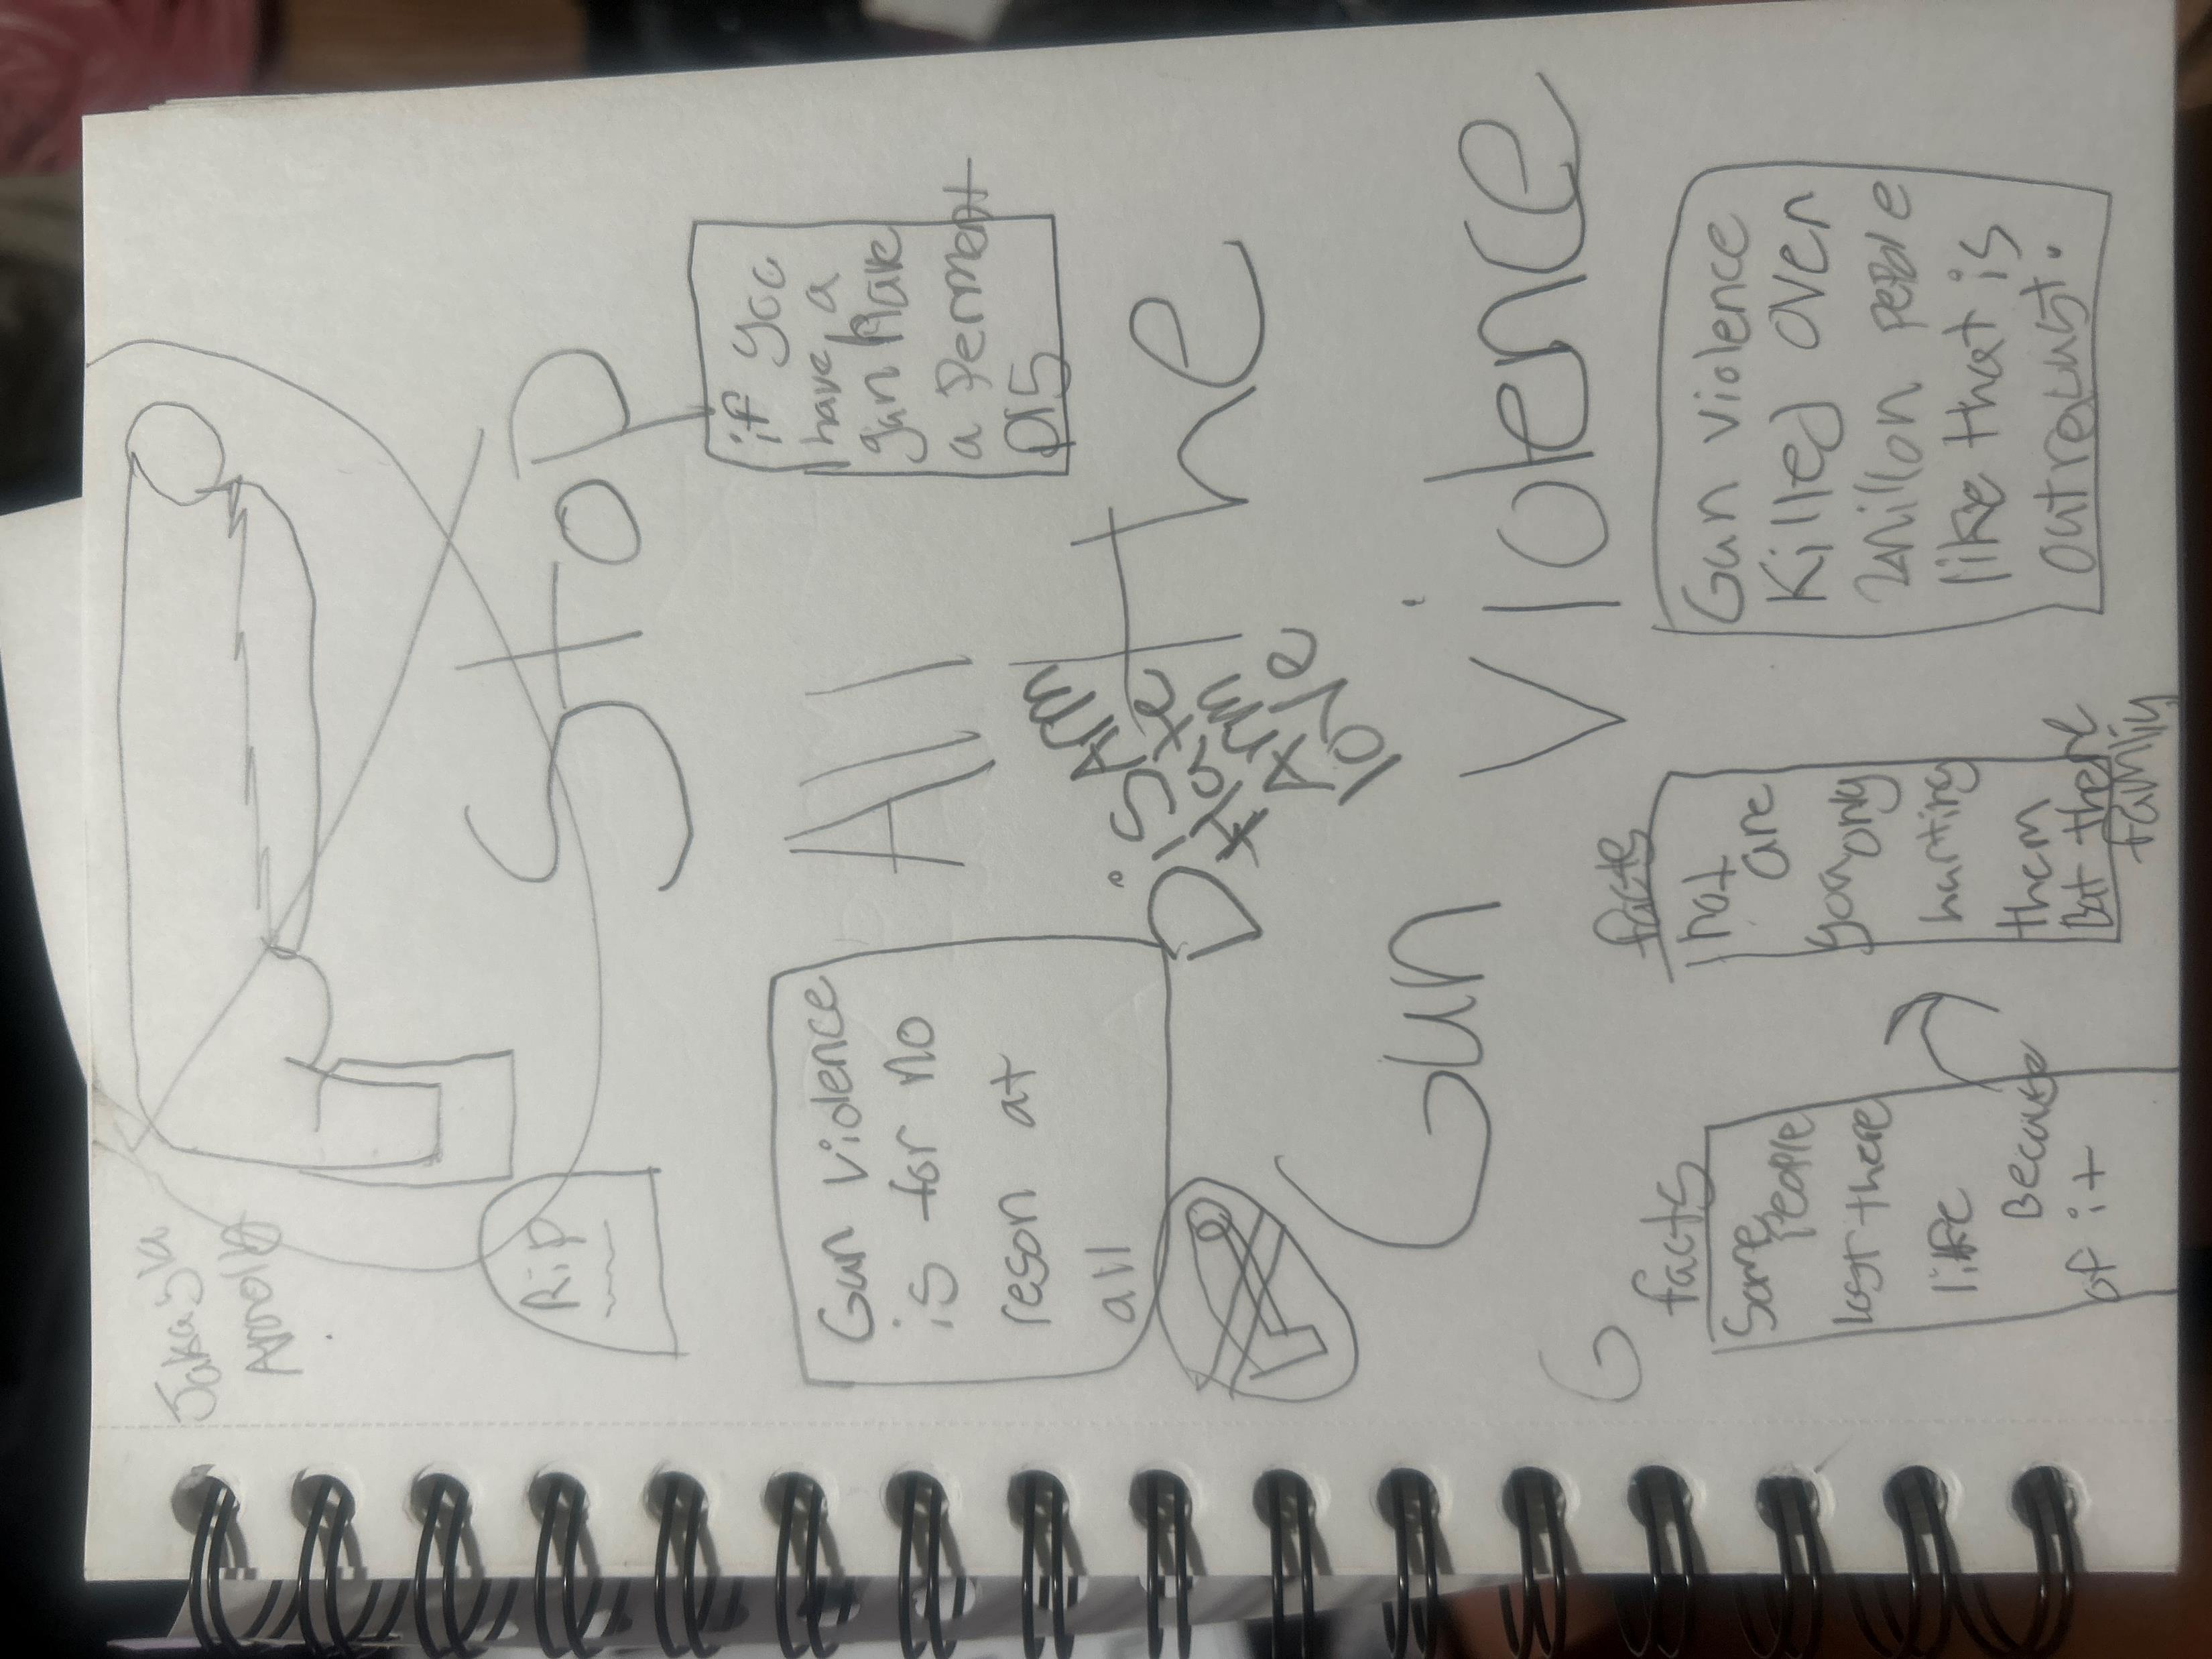 Jakayla
Arnold
RiP
STOP
if you
have a
gun have
a Perment
Pls
All the
Gun violence
is for no
reson at
all
DiSARM
Hate
Arm
love
Gun Violence
G
facts
Some
People
lost there
life
Because
of it
facts
not
are
you only
hurting
them
But there
family
Gun violence
Killed over
Millon peple
like that is
outreaust.